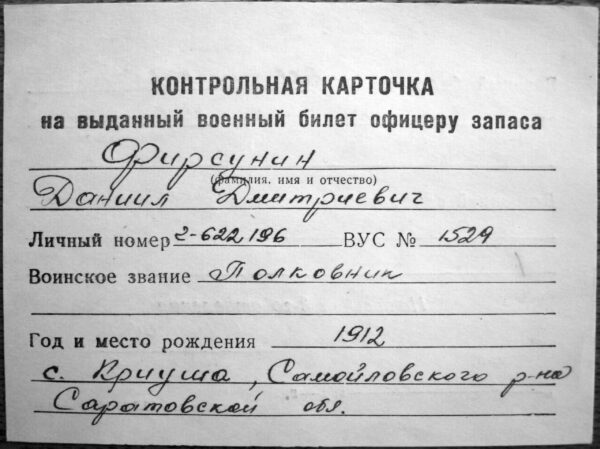 КОНТРОЛЬНАЯ КАРТОЧКА
на выданный военный билет офицеру запаса
Фирсунин
(фамилия, имя и отчество)
Даниил Дмитриевич
Личный номер 2-622196 ВУС № 1529
Воинское звание Полковник
Год и место рождения 1912
с. Криуша, Самойловского р-на
Саратовской обл.